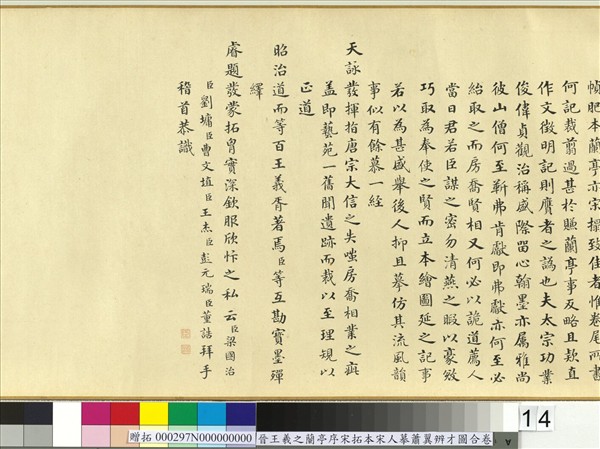 幀肥本蘭亭亦宋搨致佳者惟卷尾所書
何記裁前過甚於賺蘭亭事反略且款直
作文徵明記則贋者之譌也夫太宗功業
俊偉貞觀治稱盛際留心翰墨亦屬雅尚
彼山僧何至靳弗肯獻即弗獻亦何至必
紿取之而房喬賢相又何必以詭道薦人
當日君若臣謀之密勿清燕之暇以豪
巧取為奉使之賢而立本繪圖延之記事
若以為甚盛舉後人抑且摹仿其流風韻
事似有餘慕一經
天詠發揮指唐宗大信之失嗤房喬相業之疵
盖即藝苑一舊聞遺跡而裁以至理規以
正道
昭治道而等百王義胥著焉臣等互勘寶墨殫
繹
睿題發蒙拓胷實深欽服欣忭之私云臣梁國治
臣劉墉臣曹文埴臣王杰臣彭元瑞臣董誥拜手
稽首恭識
14
贈拓 000297N000000000 晉王羲之蘭亭序宋拓本宋人摹蕭翼辨才圖合卷
A